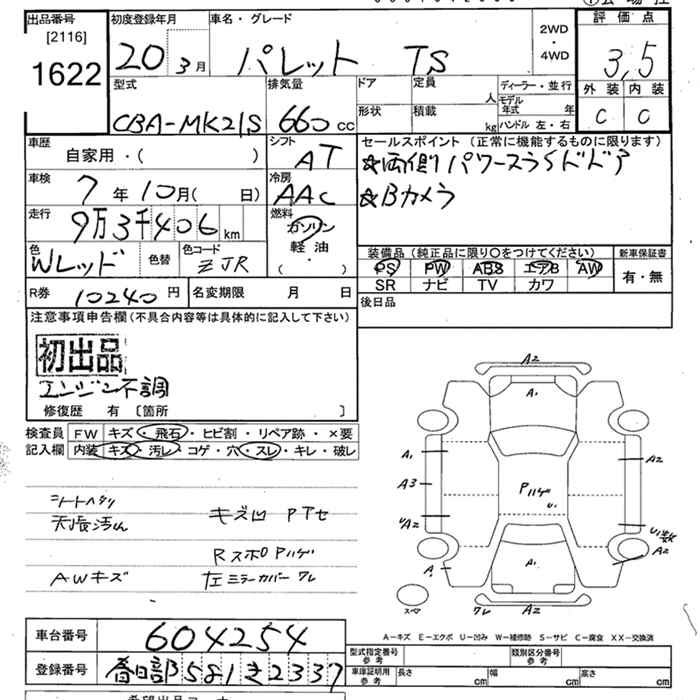 出品番号
[2116]
1622
初度登録年月
20 3月
車名・グレード
パレット TS
2WD
・
4WD
評価点
3,5
外装 内装
C C
型式
CBA-MK21S
排気量
660 CC
ドア
定員
人
形状
積載
kg
ディーラー・並行
モデル年式 年
ハンドル 左・右
車歴
自家用・( )
シフト
AT
車検
7年10月( 日)
冷房
AAC
走行
9万3千406 km
燃料
ガソリン
軽油
( ・ )
色
Wレッド
色替
色コード
ZJR
R券 10240円
名変期限 月 日
セールスポイント(正常に機能するものに限ります)
☆両側パワースライドドア
☆Bカメラ
装備品(純正品に限り○をつけてください)
PS PW ABS エアB AW
SR ナビ TV カワ
新車保証書
有・無
後日品
注意事項申告欄(不具合内容等は具体的に記入して下さい)
初出品
エンジン不調
修復歴 有 [箇所 ]
検査員記入欄
FW キズ・飛石・ヒビ割・リペア跡・×要
内装 キズ・汚レ・コゲ・穴・スレ・キレ・破レ
シートヘタリ
天張汚れ
キズ凹 PTセ
RスポPハゲ
AWキズ
左ミラーカバーワレ
A2
A1
A1
A2
A3
Pハゲ
U1
UA2
U1数
A2
A1
A1
スペア
ワレ A2
A-キズ E-エクボ U-凹み W-補修跡 S-サビ C-腐食 XX-交換済
車台番号
604254
登録番号
春日部581き2337
型式指定番号
参考
類別区分番号
参考
車庫証明用
参考
長さ cm
幅 cm
高さ cm